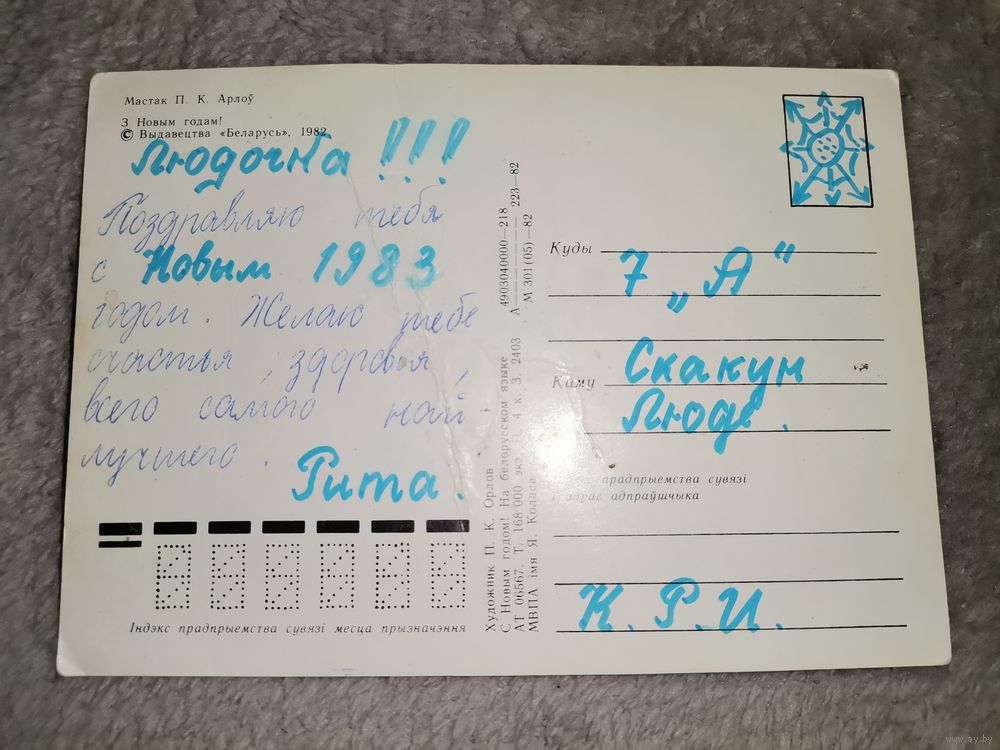 Мастак П. К. Арлоў
З Новым годам!
© Выдавецтва «Беларусь», 1982
Людочка!!!
Поздравляю тебя
с Новым 1983
годом. Желаю тебе
счастья, здоровья,
всего самого най-
лучшего.
Рита.
Індэкс прадпрыемства сувязі месца прызначэння
Художник П. К. Орлов
С Новым годом! На белорусском языке
АТ 06567. Т. 168 000 экз. 4 к. З. 2403
МВПА імя Я. Коласа
4903040000—218
А 223—82
М 301(05)—82
Куды
7 „А"
Каму
Скакун
Люде.
прадпрыемства сувязі
адрас адпраўшчыка
К. Р. И.
www.ay.by